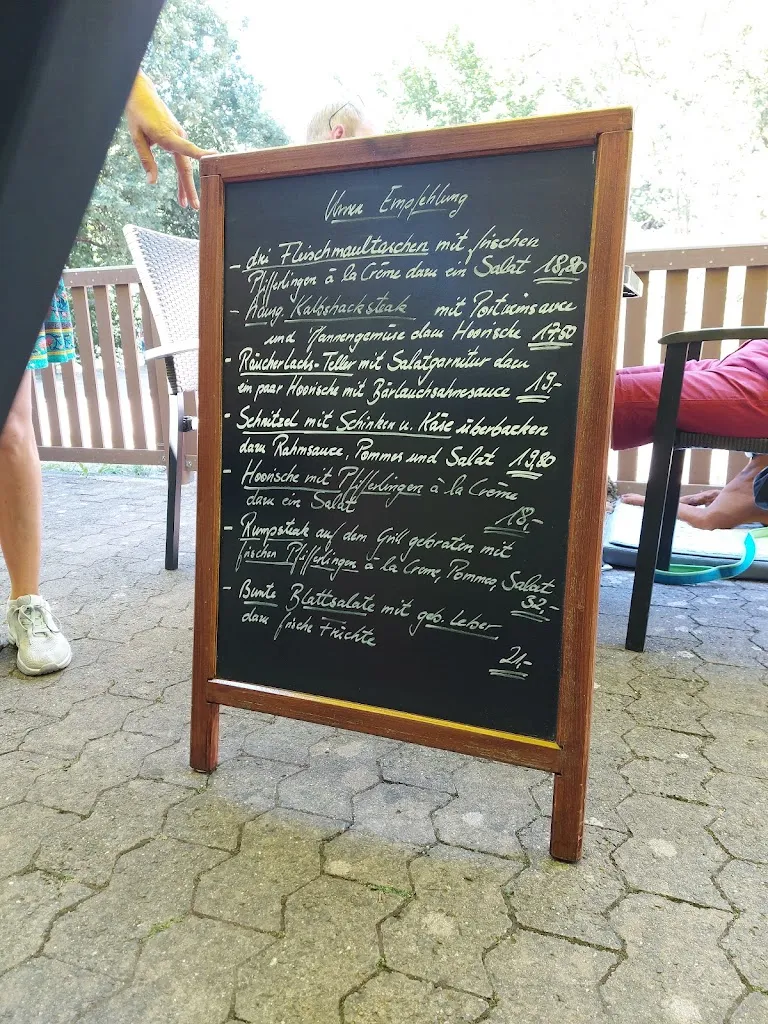 Unsere Empfehlung
- drei Fleischmaultaschen mit frischen
Pfifferlingen à la Crème dazu ein Salat 18,80
- Hausg. Kalbshacksteak mit Portweinsauce
und Pfannengemüse dazu Hoorische 17,50
- Räucherlachs-Teller mit Salatgarnitur dazu
ein paar Hoorische mit Bärlauchsahnesauce 19,-
- Schnitzel mit Schinken u. Käse überbacken
dazu Rahmsauce, Pommes und Salat 19,80
- Hoorische mit Pfifferlingen à la Crème
dazu ein Salat 18,-
- Rumpsteak auf dem Grill gebraten mit
frischen Pfifferlingen à la Creme, Pommes, Salat
32,-
- Bunte Blattsalate mit geb. Leber
dazu frische Früchte
21,-